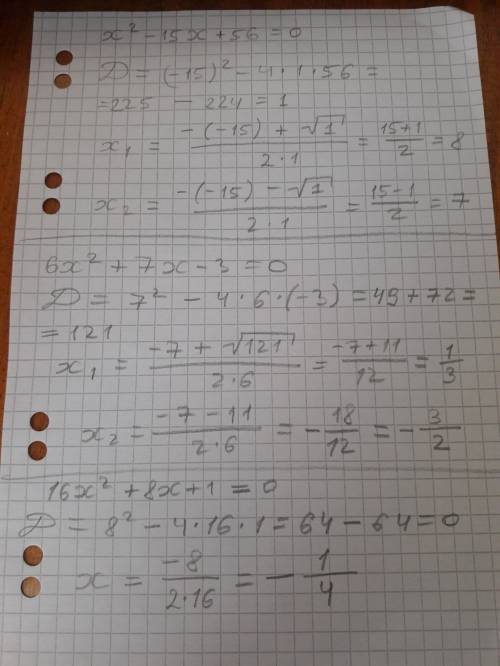 x² - 15x + 56 = 0
D = (-15)² - 4·1·56 =
= 225 - 224 = 1
x₁ = (-(-15) + √1)/(2·1) = (15+1)/2 = 8
x₂ = (-(-15) - √1)/(2·1) = (15-1)/2 = 7
6x² + 7x - 3 = 0
D = 7² - 4·6·(-3) = 49 + 72 =
= 121
x₁ = (-7 + √121)/(2·6) = (-7+11)/12 = 1/3
x₂ = (-7 - 11)/(2·6) = -18/12 = -3/2
16x² + 8x + 1 = 0
D = 8² - 4·16·1 = 64 - 64 = 0
x = -8/(2·16) = -1/4